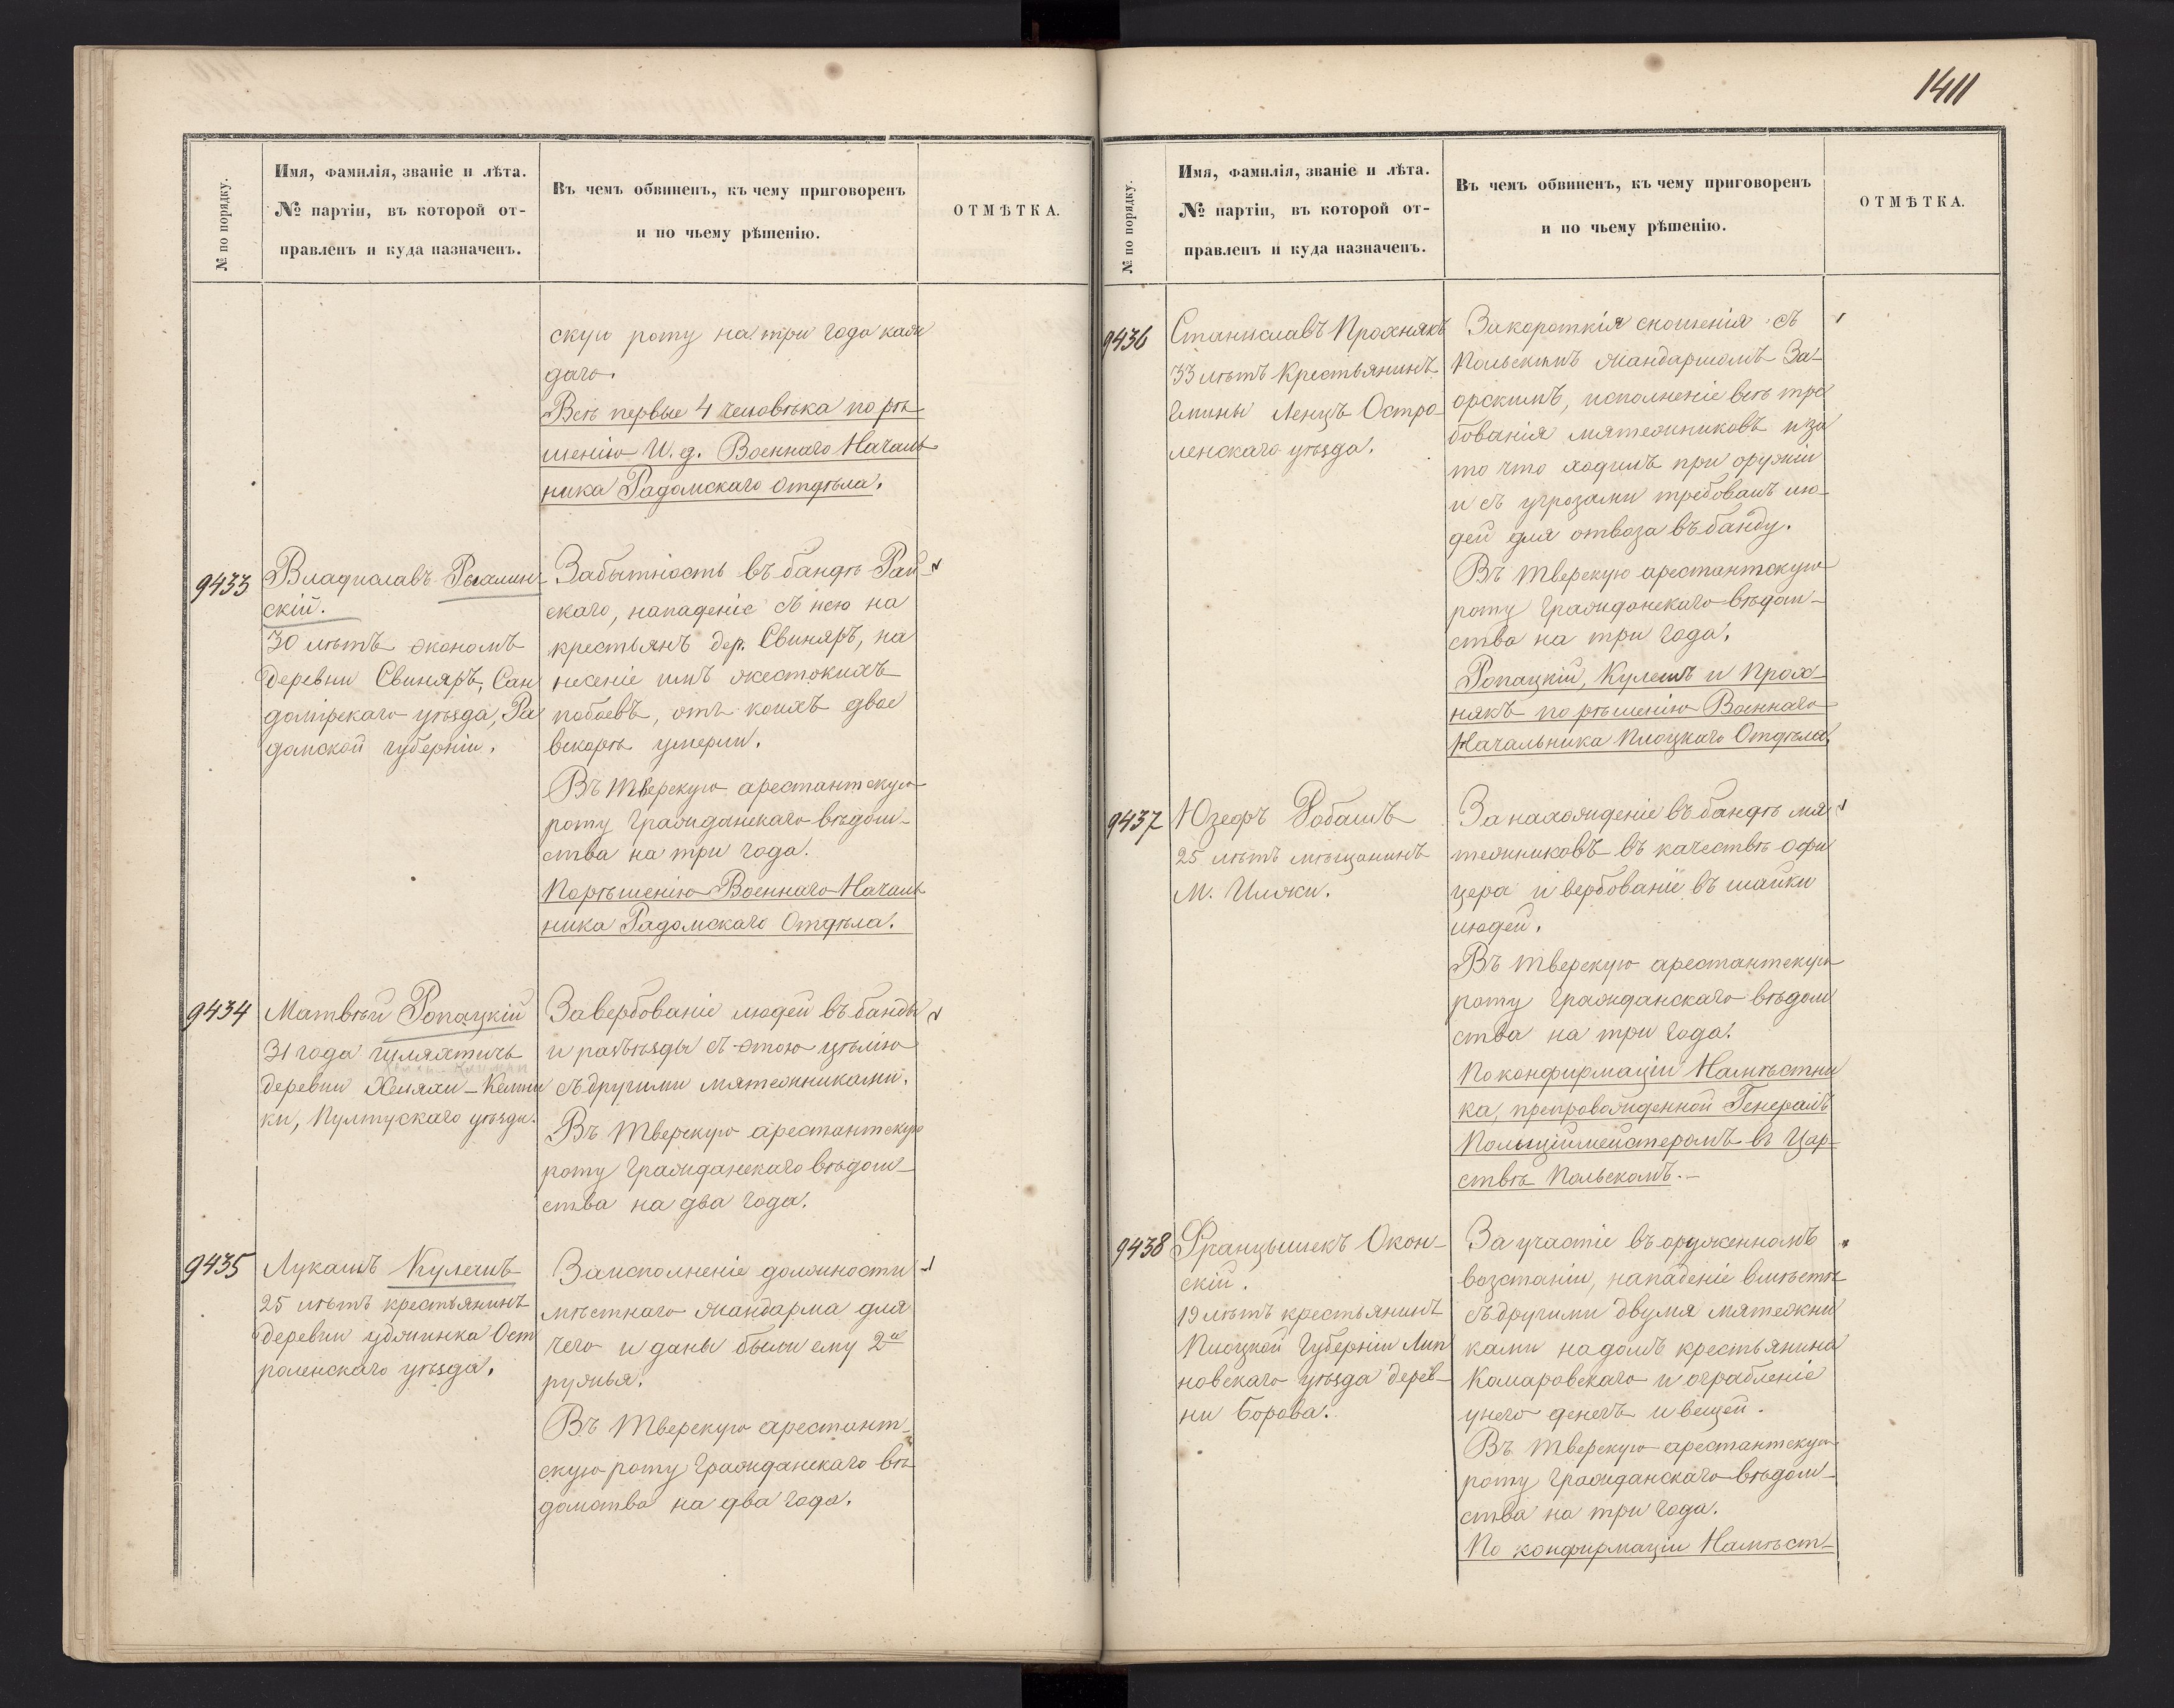 1411
№ по порядку.
Имя, фамилія, званіе и лѣта.
№ партіи, въ которой от-
правленъ и куда назначенъ.
Въ чемъ обвиненъ, къ чему приговоренъ
и по чьему рѣшенію.
ОТМѢТКА.
скую роту на три года каж
даго.
Всѣ первые 4 человѣка по рѣ
шенію И. д. Военнаго Началь
ника Радомскаго Отдѣла.
9433
Владиславъ
скій.
30 лѣтъ экономъ
деревни Свиняръ, Сан
домірскаго уѣзда, Ра
домской губерніи.
За бытность въ бандѣ Рай-
скаго, нападеніе съ нею на
крестьянъ дер. Свиняръ, на
несеніе имъ жестокихъ
побоевъ, отъ коихъ двое
вскорѣ умерли.
Въ Тверскую арестантскую
роту Гражданскаго вѣдом-
ства на три года.
По рѣшенію Военнаго Началь
ника Радомскаго Отдѣла.
9434
Матвѣй Ропацкій
31 года шляхтичь
деревни
ки, Пултускаго уѣзда.
За вербованіе людей въ банды
и разъѣзды съ этою цѣлію
съ другими мятежниками.
Въ Тверскую арестантскую
роту Гражданскаго вѣдом-
ства на два года.
9435
Лукашъ Кулешъ
25 лѣтъ крестьянинъ
деревни Остр
роленскаго уѣзда.
За исполненіе должности
мѣстнаго жандарма для
чего и даны были ему 2а
ружья.
Въ Тверскую арестант-
скую роту Гражданскаго вѣ
домства на два года.
№ по порядку.
Имя, фамилія, званіе и лѣта.
№ партіи, въ которой от-
правленъ и куда назначенъ.
Въ чемъ обвиненъ, къ чему приговоренъ
и по чьему рѣшенію.
ОТМѢТКА.
9436
Станиславъ Прохнякъ
33 лѣтъ Крестьянинъ
Гмины Ленцъ Остро-
ленскаго уѣзда.
За короткія сношенія съ
Польскимъ жандармомъ За-
орскимъ, исполненіе всѣ тре
бованія мятежниковъ и за
то что ходилъ при оружіи
и съ угрозами требовалъ лю-
дей для отвоза въ банду.
Въ Тверскую арестантскую
роту Гражданскаго вѣдом-
ства на три года.
Ропацкій, Кулешъ и Прох-
някъ по рѣшенію Военнаго
Начальника Плоцкаго Отдѣла.
9437
Юзефъ Робашъ
25 лѣтъ мѣщанинъ
М. Илжи.
За нахожденіе въ бандѣ мя
тежниковъ въ качествѣ офи
цера и вербованіе въ шайки
людей.
Въ Тверскую арестантскую
роту Гражданскаго вѣдом
ства на три года.
По конфирмаціи Намѣстни
ка, препровожденной Генералъ
Полиціймейстеромъ въ Цар-
ствѣ Польскомъ.-
9438
Францышекъ Окон-
скій.
19 лѣтъ крестьянинъ
Плоцкой Губерніи Лип
новскаго уѣзда дерев-
ни Борова.
За участіе въ оруженномъ
возстаніи, нападеніе вмѣстѣ
съ другими двумя мятежни
ками на домъ крестьянина
Комаровскаго и ограбленіе
у него денегъ и вещей.
Въ Тверскую арестантскую
роту Гражданскаго вѣдом-
ства на три года.
По конфирмаціи Намѣст-